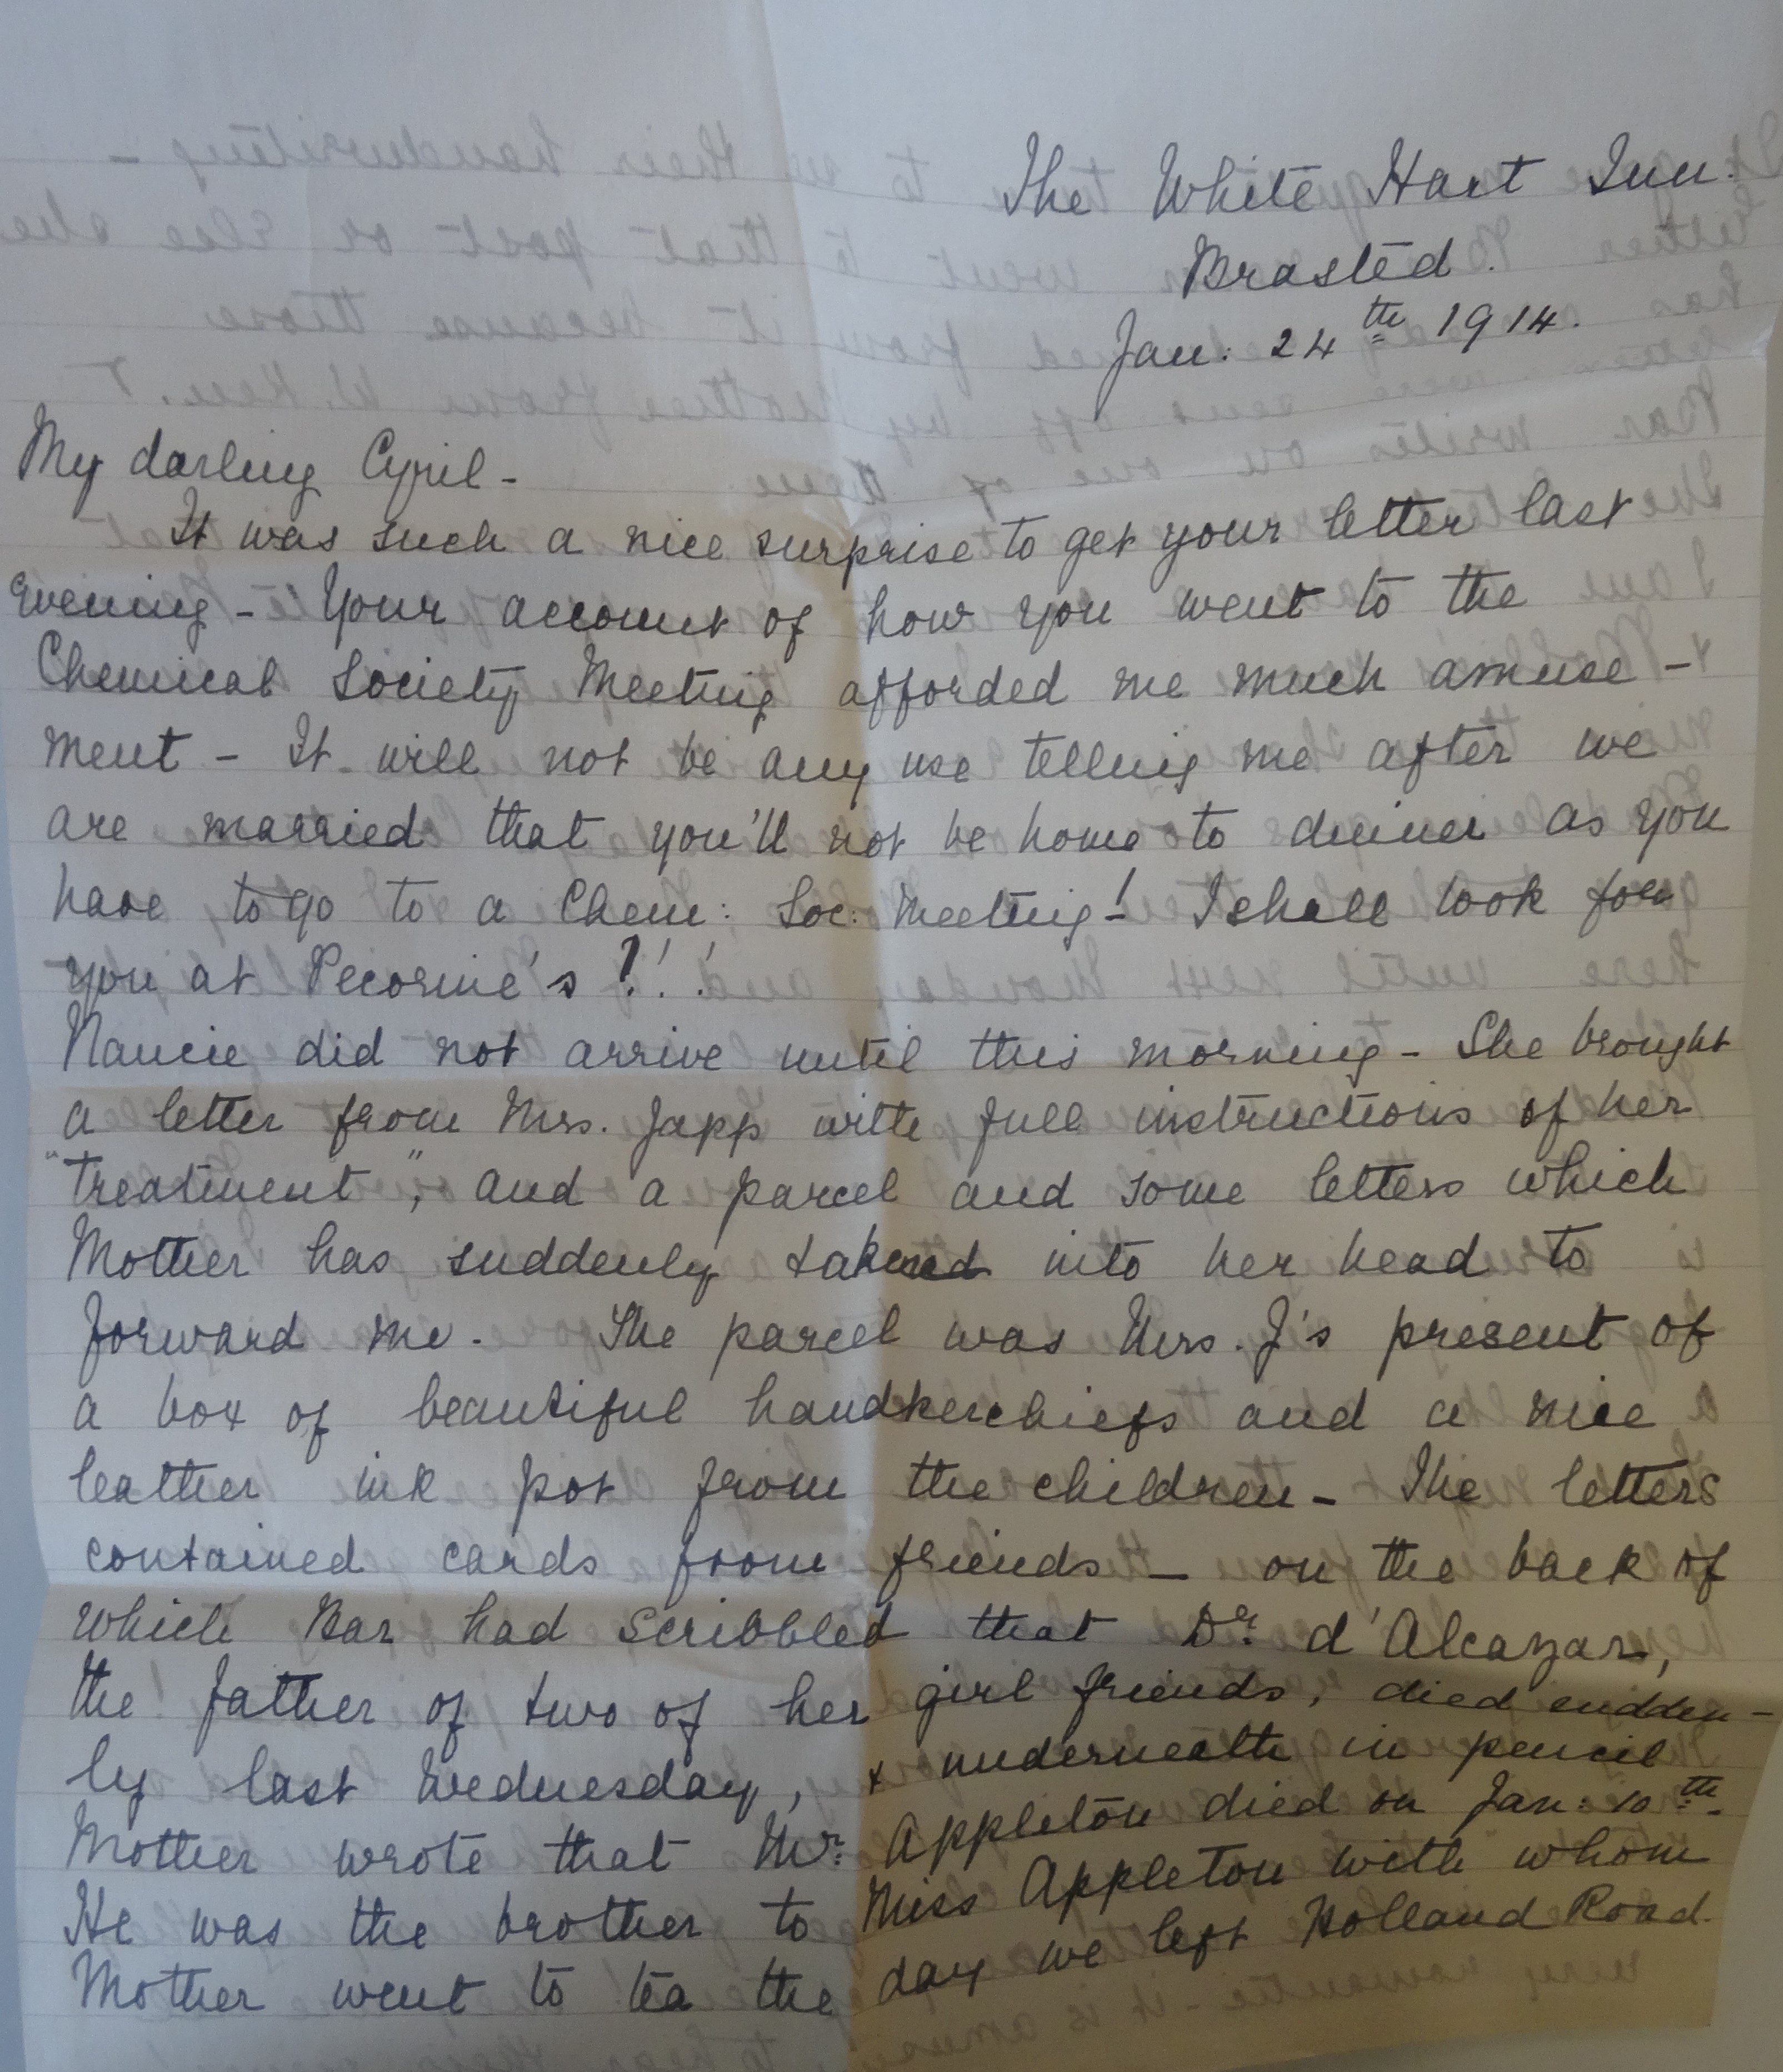 The White Hart Inn.
Brasted.
Jan: 24th 1914.
My darling Cyril -
It was such a nice surprise to get your letter last
evening - Your account of how you went to the
Chemical Society Meeting afforded me much amuse -
ment - It will not be any use telling me after we
are married that you'll not be home to dinner as you
have to go to a Chem: Soc: Meeting! - I shall look for
you at Pecorine's ?!!
Nancie did not arrive until this morning - She brought
a letter from Mrs. Japp with full instructions of her
"treatment", and a parcel and some letters which
Mother has suddenly taken into her head to
forward me. The parcel was Mrs. J's present of
a box of beautiful handkerchiefs and a nice
leather ink pot from the children - The letters
contained cards from friends - on the back of
which Bar had scribbled that Dr. d'Alcazar,
the father of two of her girl friends, died sudden -
ly last Wednesday, & underneath in pencil
Mother wrote that Mr. Appleton died on Jan: 10th.
He was the brother to Miss Appleton with whom
Mother went to tea the day we left Holland Road.